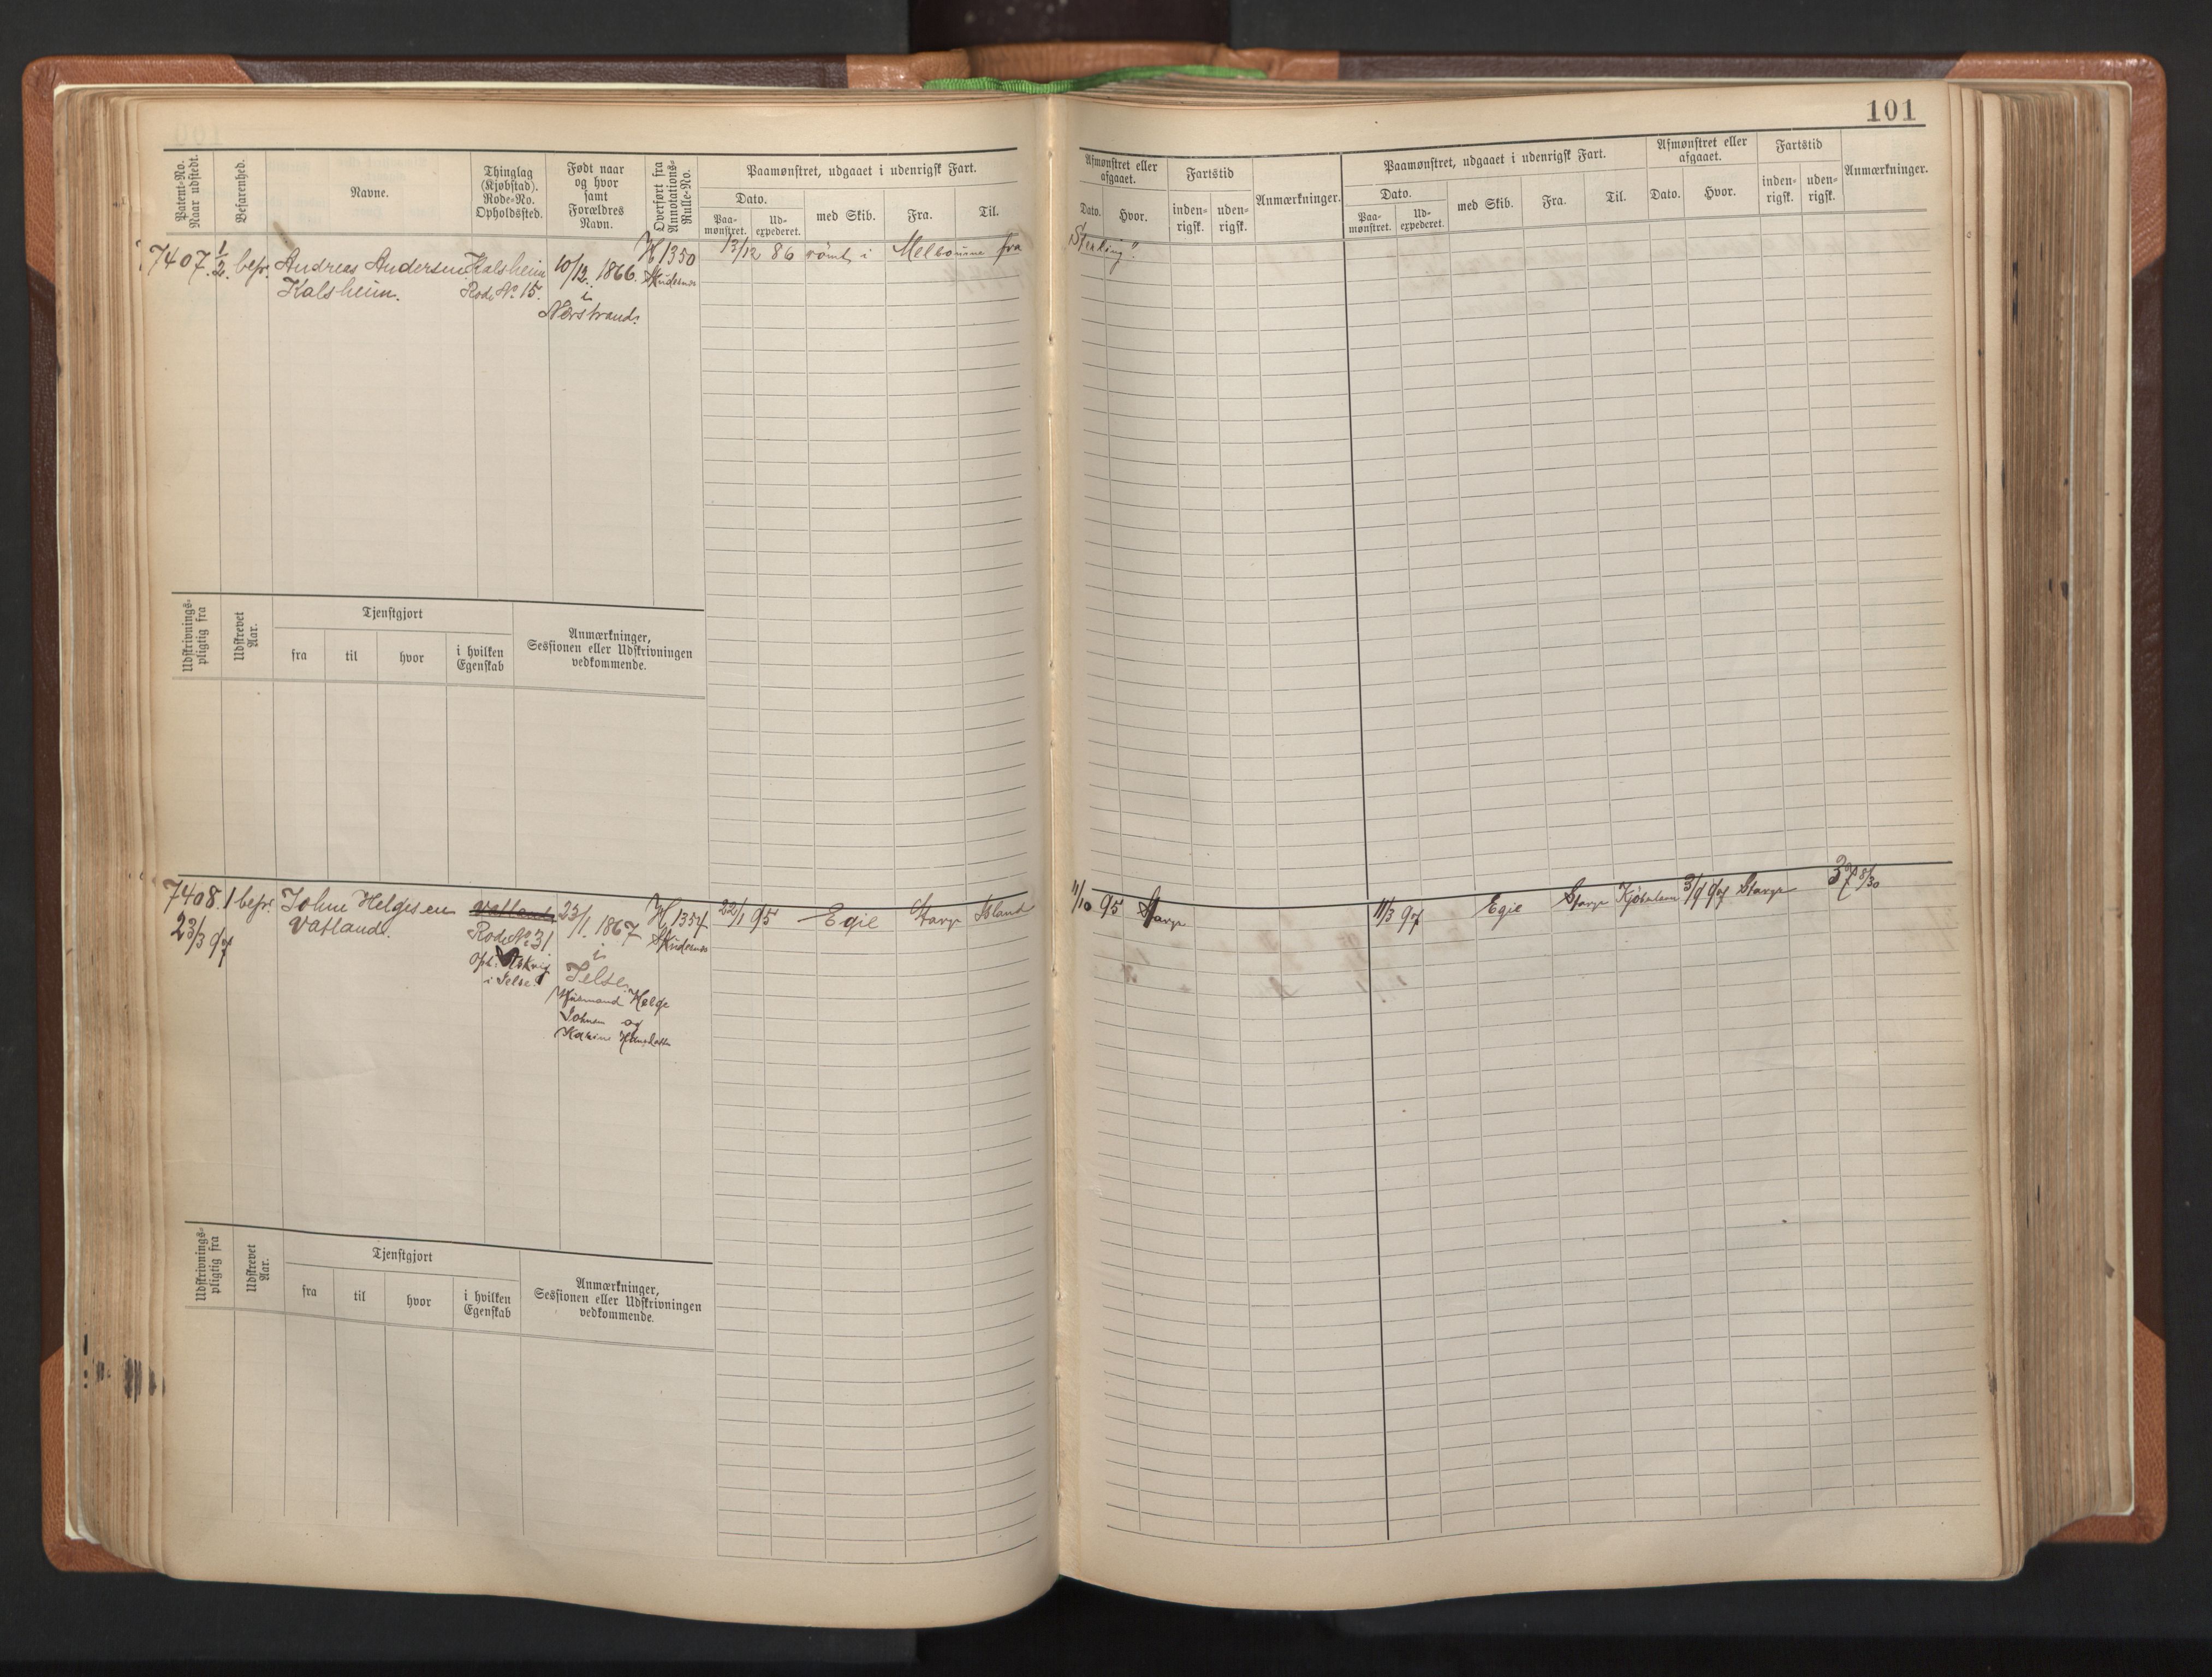 101
Patent-No.
Naar udstedt.
Befarenhed.
Navne.
Thinglag
(Kjøbstad).
Rode-No.
Opholdssted.
Født naar
og hvor
samt
Forældres
Navn.
Overført fra
Annotations-
Rulle-No.
Paamønstret, udgaaet i udenrigsk Fart.
Dato.
Paa-
mønstret.
Ud-
expederet.
med Skib.
Fra.
Til.
Afmønstret eller
afgaaet.
Dato.
Hvor.
Fartstid
inden-
rigsk.
uden-
rigsk.
Anmærkninger.
Paamønstret, udgaaet i udenrigsk Fart.
Dato.
Paa-
mønstret.
Ud-
expederet.
med Skib.
Fra.
Til.
Afmønstret eller
afgaaet.
Dato.
Hvor.
Fartstid
inden-
rigsk.
uden-
rigsk.
Anmærkninger.
7407. 1/2. befr.
Andreas Andersen
Kalsheim.
Kalsheim
Rode No. 15.
10/12. 1866.
i
Nerstrand.
H 1350
Skudesnes
13/12 86 rømt i Melbourne fra "Sterling".
Udskrivnings-
pligtig fra
Udskrevet
Aar.
Tjenstgjort
fra
til
hvor
i hvilken
Egenskab
Anmærkninger,
Sessionen eller Udskrivningen
vedkommende.
7408. 1 befr.
23/3 97
John Helgesen
Vatland.
Vatland
Rode No. 31
i Jelse.
23/1. 1867
i
Jelse.
Husmand Helge
Johnsen og
Karin
H 1354
Skudesnes
22/1 95 Egil Stavgr Island
11/10 95 Stavgr
11/3 97 Egil Stavgr 3/9 97 Stavgr
Udskrivnings-
pligtig fra
Udskrevet
Aar.
Tjenstgjort
fra
til
hvor
i hvilken
Egenskab
Anmærkninger,
Sessionen eller Udskrivningen
vedkommende.